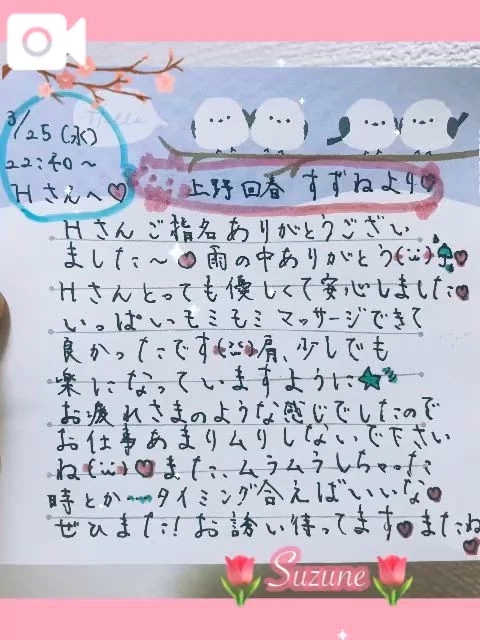 3/25(水)
22:40~
Hさんへ♡
上野回春 すずねより♡
Hさんご指名ありがとうござい
ました〜♡雨の中ありがとう(¨̮)☂♡
Hさんとっても優しくて安心しました♡
いっぱいモミモミマッサージできて
良かったです(¨̮)肩、少しでも
楽になっていますように★
お疲れさまのような感じでしたので
お仕事あまりムリしないで下さい
ね(¨̮)♡また、ムラムラしちゃった
時とか〰タイミング合えばいいな♡
ぜひまた!お誘い待ってます♡またね
♡
Suzune